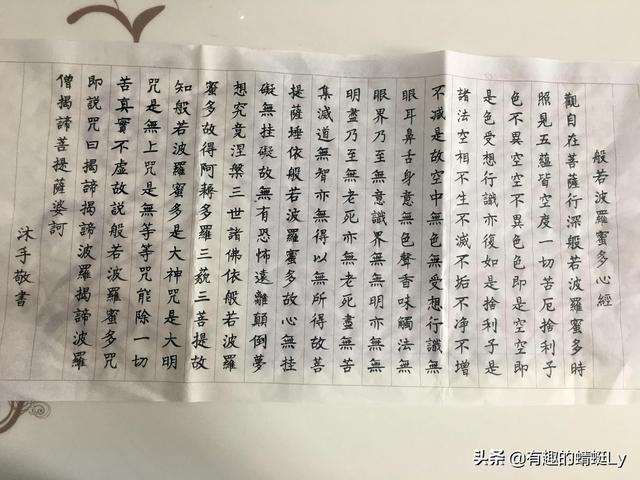 般若波羅蜜多心經
觀自在菩薩行深般若波羅蜜多時
照見五蘊皆空度一切苦厄捨利子
色不異空空不異色色即是空空即
是色受想行識亦復如是捨利子是
諸法空相不生不滅不垢不净不增
不减是故空中無色無受想行識無
眼耳鼻舌身意無色聲香味觸法無
眼界乃至無意識界無無明亦無無
明盡乃至無老死亦無老死盡無苦
集滅道無智亦無得以無所得故菩
提薩埵依般若波羅蜜多故心無挂
礙無挂礙故無有恐怖遠離顛倒夢
想究竟涅槃三世諸佛依般若波羅
蜜多故得阿耨多羅三藐三菩提故
知般若波羅蜜多是大神咒是大明
咒是無上咒是無等等咒能除一切
苦真實不虛故説般若波羅蜜多咒
即説咒曰揭諦揭諦波羅揭諦波羅
僧揭諦菩提薩婆訶
沐手敬書
头条 @有趣的蜻蜓Ly